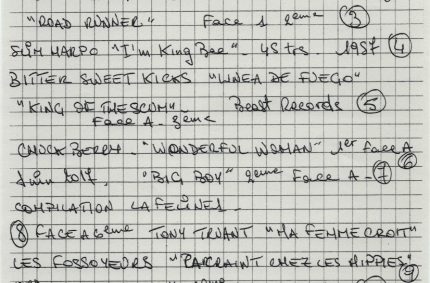 "ROAD RUNNER" Face 1 2eme ③
SLIM HARPO "I'm King Bee" - 45 trs. 1957 ④
BITTER SWEET KICKS "LINEA DE FUEGO"
"KING OF THE SCUM" - Beast Records ⑤
Face A - 3eme
CHUCK BERRY - "WONDERFUL WOMAN" 1er face A ⑥
Juin 2017, "BIG BOY" 2eme Face A - ⑦
COMPILATION LA FELINE 1 -
⑧ FACE A 6eme TONY TRUANT "MA FEMME CROIT"
LES FOSSOYEURS "PARRAINT CHEZ LES HIPPIES" ⑨